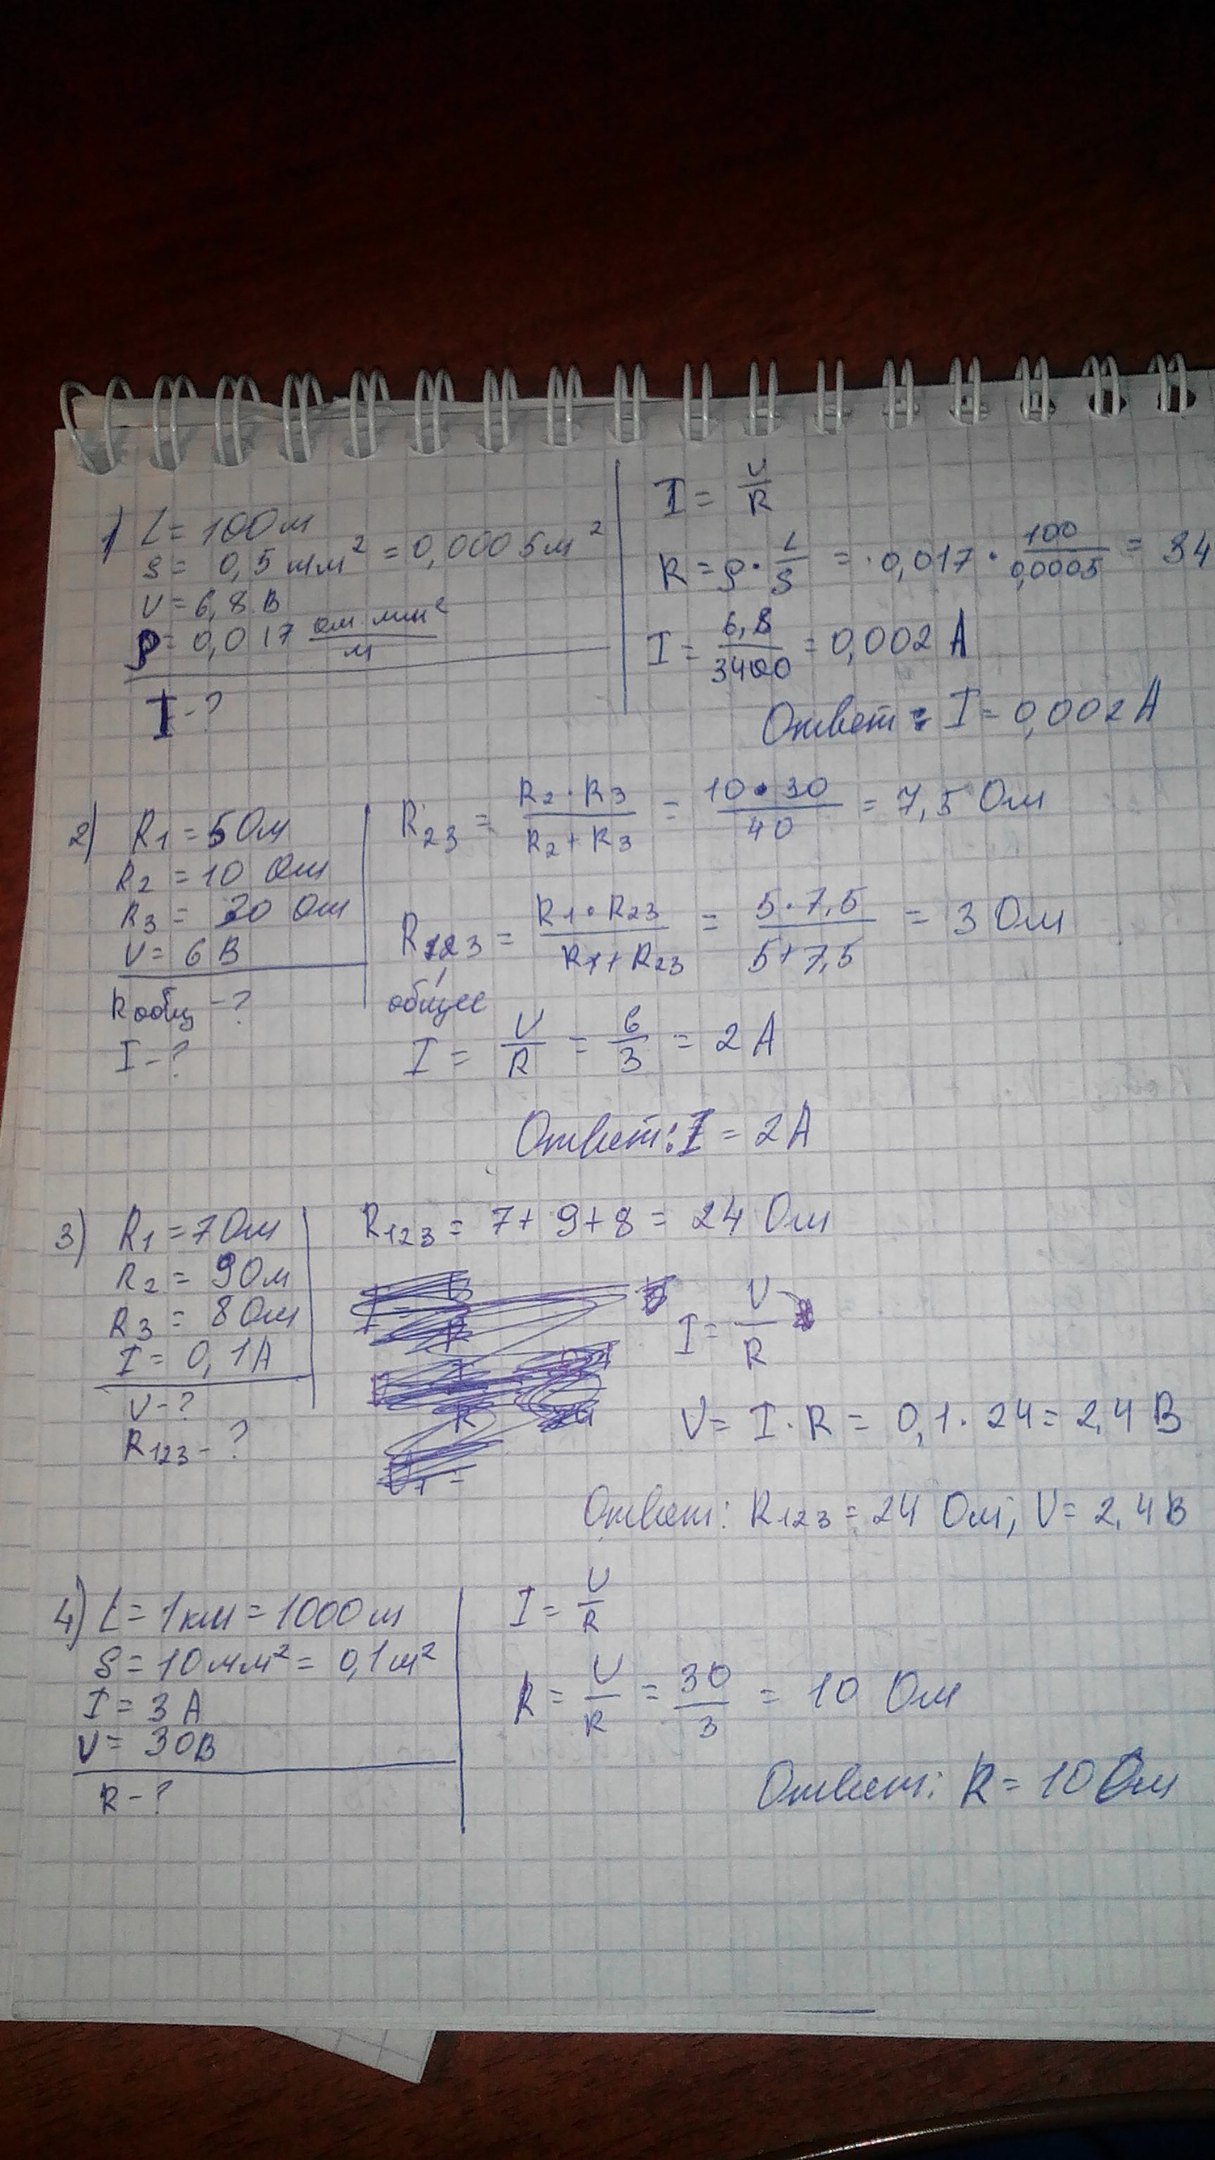 1) L = 100м
S = 0,5 мм² = 0,0005м²
U = 6,8 В
ρ = 0,017 ом·мм²/м
I - ?
I = U/R
R = ρ · L/S = · 0,017 · 100/0,0005 = 34
I = 6,8/3400 = 0,002 А
Ответ: I = 0,002 А
2) R1 = 5 Ом
R2 = 10 Ом
R3 = 30 Ом
U = 6 В
Rобщ - ?
I - ?
R23 = R2 · R3 / R2 + R3 = 10 · 30 / 40 = 7,5 Ом
R123 = R1 · R23 / R1 + R23 = 5 · 7,5 / 5 + 7,5 = 3 Ом
общее
I = U/R = 6/3 = 2 А
Ответ: I = 2 А
3) R1 = 7 Ом
R2 = 9 Ом
R3 = 8 Ом
I = 0,1 А
U - ?
R123 - ?
R123 = 7 + 9 + 8 = 24 Ом
I = U/R
U = I · R = 0,1 · 24 = 2,4 В
Ответ: R123 = 24 Ом; U = 2,4 В
4) L = 1 км = 1000 м
S = 10 мм² = 0,1 м²
I = 3 А
U = 30 В
R - ?
I = U/R
R = U/R = 30/3 = 10 Ом
Ответ: R = 10 Ом